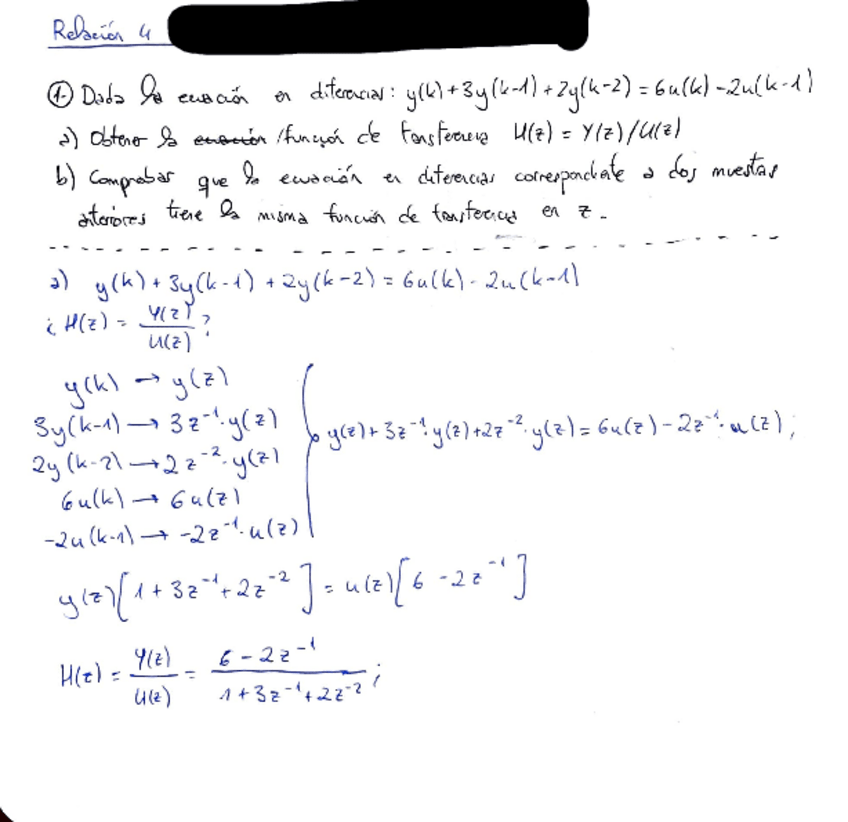 Relación 4
1- Dada la ecuación en diferencias: y(k)+3y(k-1)+2y(k-2)=6u(k)-2u(k-1)
a) Obtener la ecuación /función de transferencia H(z) = Y(z)/U(z)
b) Comprobar que la ecuación en diferencias correspondiente a dos muestras
anteriores tiene la misma función de transferencia en z.
a) y(k)+3y(k-1)+2y(k-2)=6u(k)-2u(k-1)
¿H(z) = Y(z)/U(z)?
y(k) → y(z)
3y(k-1) → 3z⁻¹·y(z)
2y(k-2) → 2z⁻²·y(z)
6u(k) → 6u(z)
-2u(k-1) → -2z⁻¹·u(z)
y(z)+3z⁻¹·y(z)+2z⁻²·y(z)=6u(z)-2z⁻¹·u(z);
y(z)[1+3z⁻¹+2z⁻²]=u(z)[6-2z⁻¹]
H(z) = Y(z)/U(z) = 6-2z⁻¹/1+3z⁻¹+2z⁻² ;